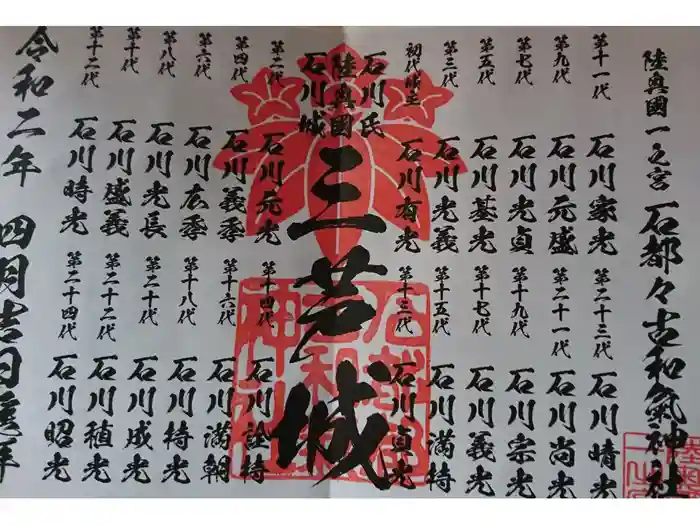 陸奥國一之宮 石都々古和氣神社
第十一代 石川家光
第二十三代 石川晴光
第九代 石川元盛
第二十一代 石川尚光
第七代 石川光貞
第十九代 石川宗光
第五代 石川基光
第十七代 石川義光
第三代 石川光義
第十五代 石川満持
初代城主 石川有光
第十三代 石川貞光
石川氏
陸奥國
石川城
三芦城
第二代 石川元光
第十四代 石川詮持
第四代 石川義季
第十六代 石川満朝
第六代 石川広季
第十八代 石川持光
第八代 石川光長
第二十代 石川成光
第十代 石川盛義
第二十二代 石川稙光
第十二代 石川時光
第二十四代 石川昭光
令和二年 四月吉日